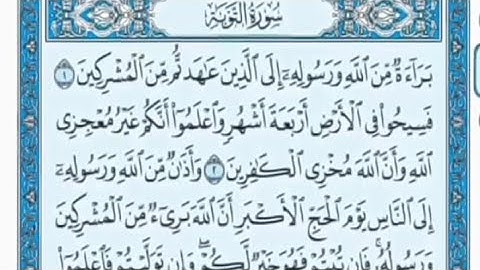 سُورَةُ التَّوْبَةِ
بَرَآءَةٌ مِّنَ ٱللَّهِ وَرَسُولِهِۦٓ إِلَى ٱلَّذِينَ عَٰهَدتُّم مِّنَ ٱلْمُشْرِكِينَ ١
فَسِيحُوا۟ فِى ٱلْأَرْضِ أَرْبَعَةَ أَشْهُرٍ وَٱعْلَمُوٓا۟ أَنَّكُمْ غَيْرُ مُعْجِزِى
ٱللَّهِ وَأَنَّ ٱللَّهَ مُخْزِى ٱلْكَٰفِرِينَ ٢ وَأَذَٰنٌ مِّنَ ٱللَّهِ وَرَسُولِهِۦٓ
إِلَى ٱلنَّاسِ يَوْمَ ٱلْحَجِّ ٱلْأَكْبَرِ أَنَّ ٱللَّهَ بَرِىٓءٌ مِّنَ ٱلْمُشْرِكِينَ
وَرَسُولُهُۥ فَإِن تُبْتُمْ فَهُوَ خَيْرٌ لَّكُمْ ۖ وَإِن تَوَلَّيْتُمْ فَٱعْلَمُوٓا۟